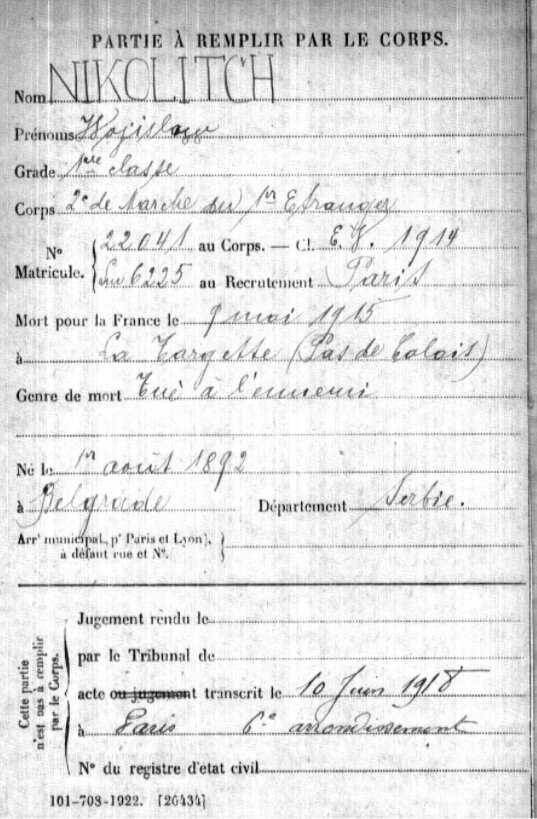 PARTIE À REMPLIR PAR LE CORPS.
Nom NIKOLITCH
Prénoms Wojislaw
Grade 1re classe
Corps 2e de Marche du 1er Etranger
No Matricule. { 22041 au Corps. — Cl. E.V. 1914
6225 au Recrutement Paris
Mort pour la France le 9 mai 1915
à La Targette (Pas de Calais)
Genre de mort Tué à l'ennemi
Né le 1er août 1892
à Belgrade Département Serbie.
Arrt municipal, pr Paris et Lyon),
à défaut rue et No.
Cette partie n'est pas à remplir par le Corps.
Jugement rendu le
par le Tribunal de
acte ou jugement transcrit le 10 Juin 1918
à Paris 6e arrondissement
No du registre d'état civil
101-708-1922. [26434]